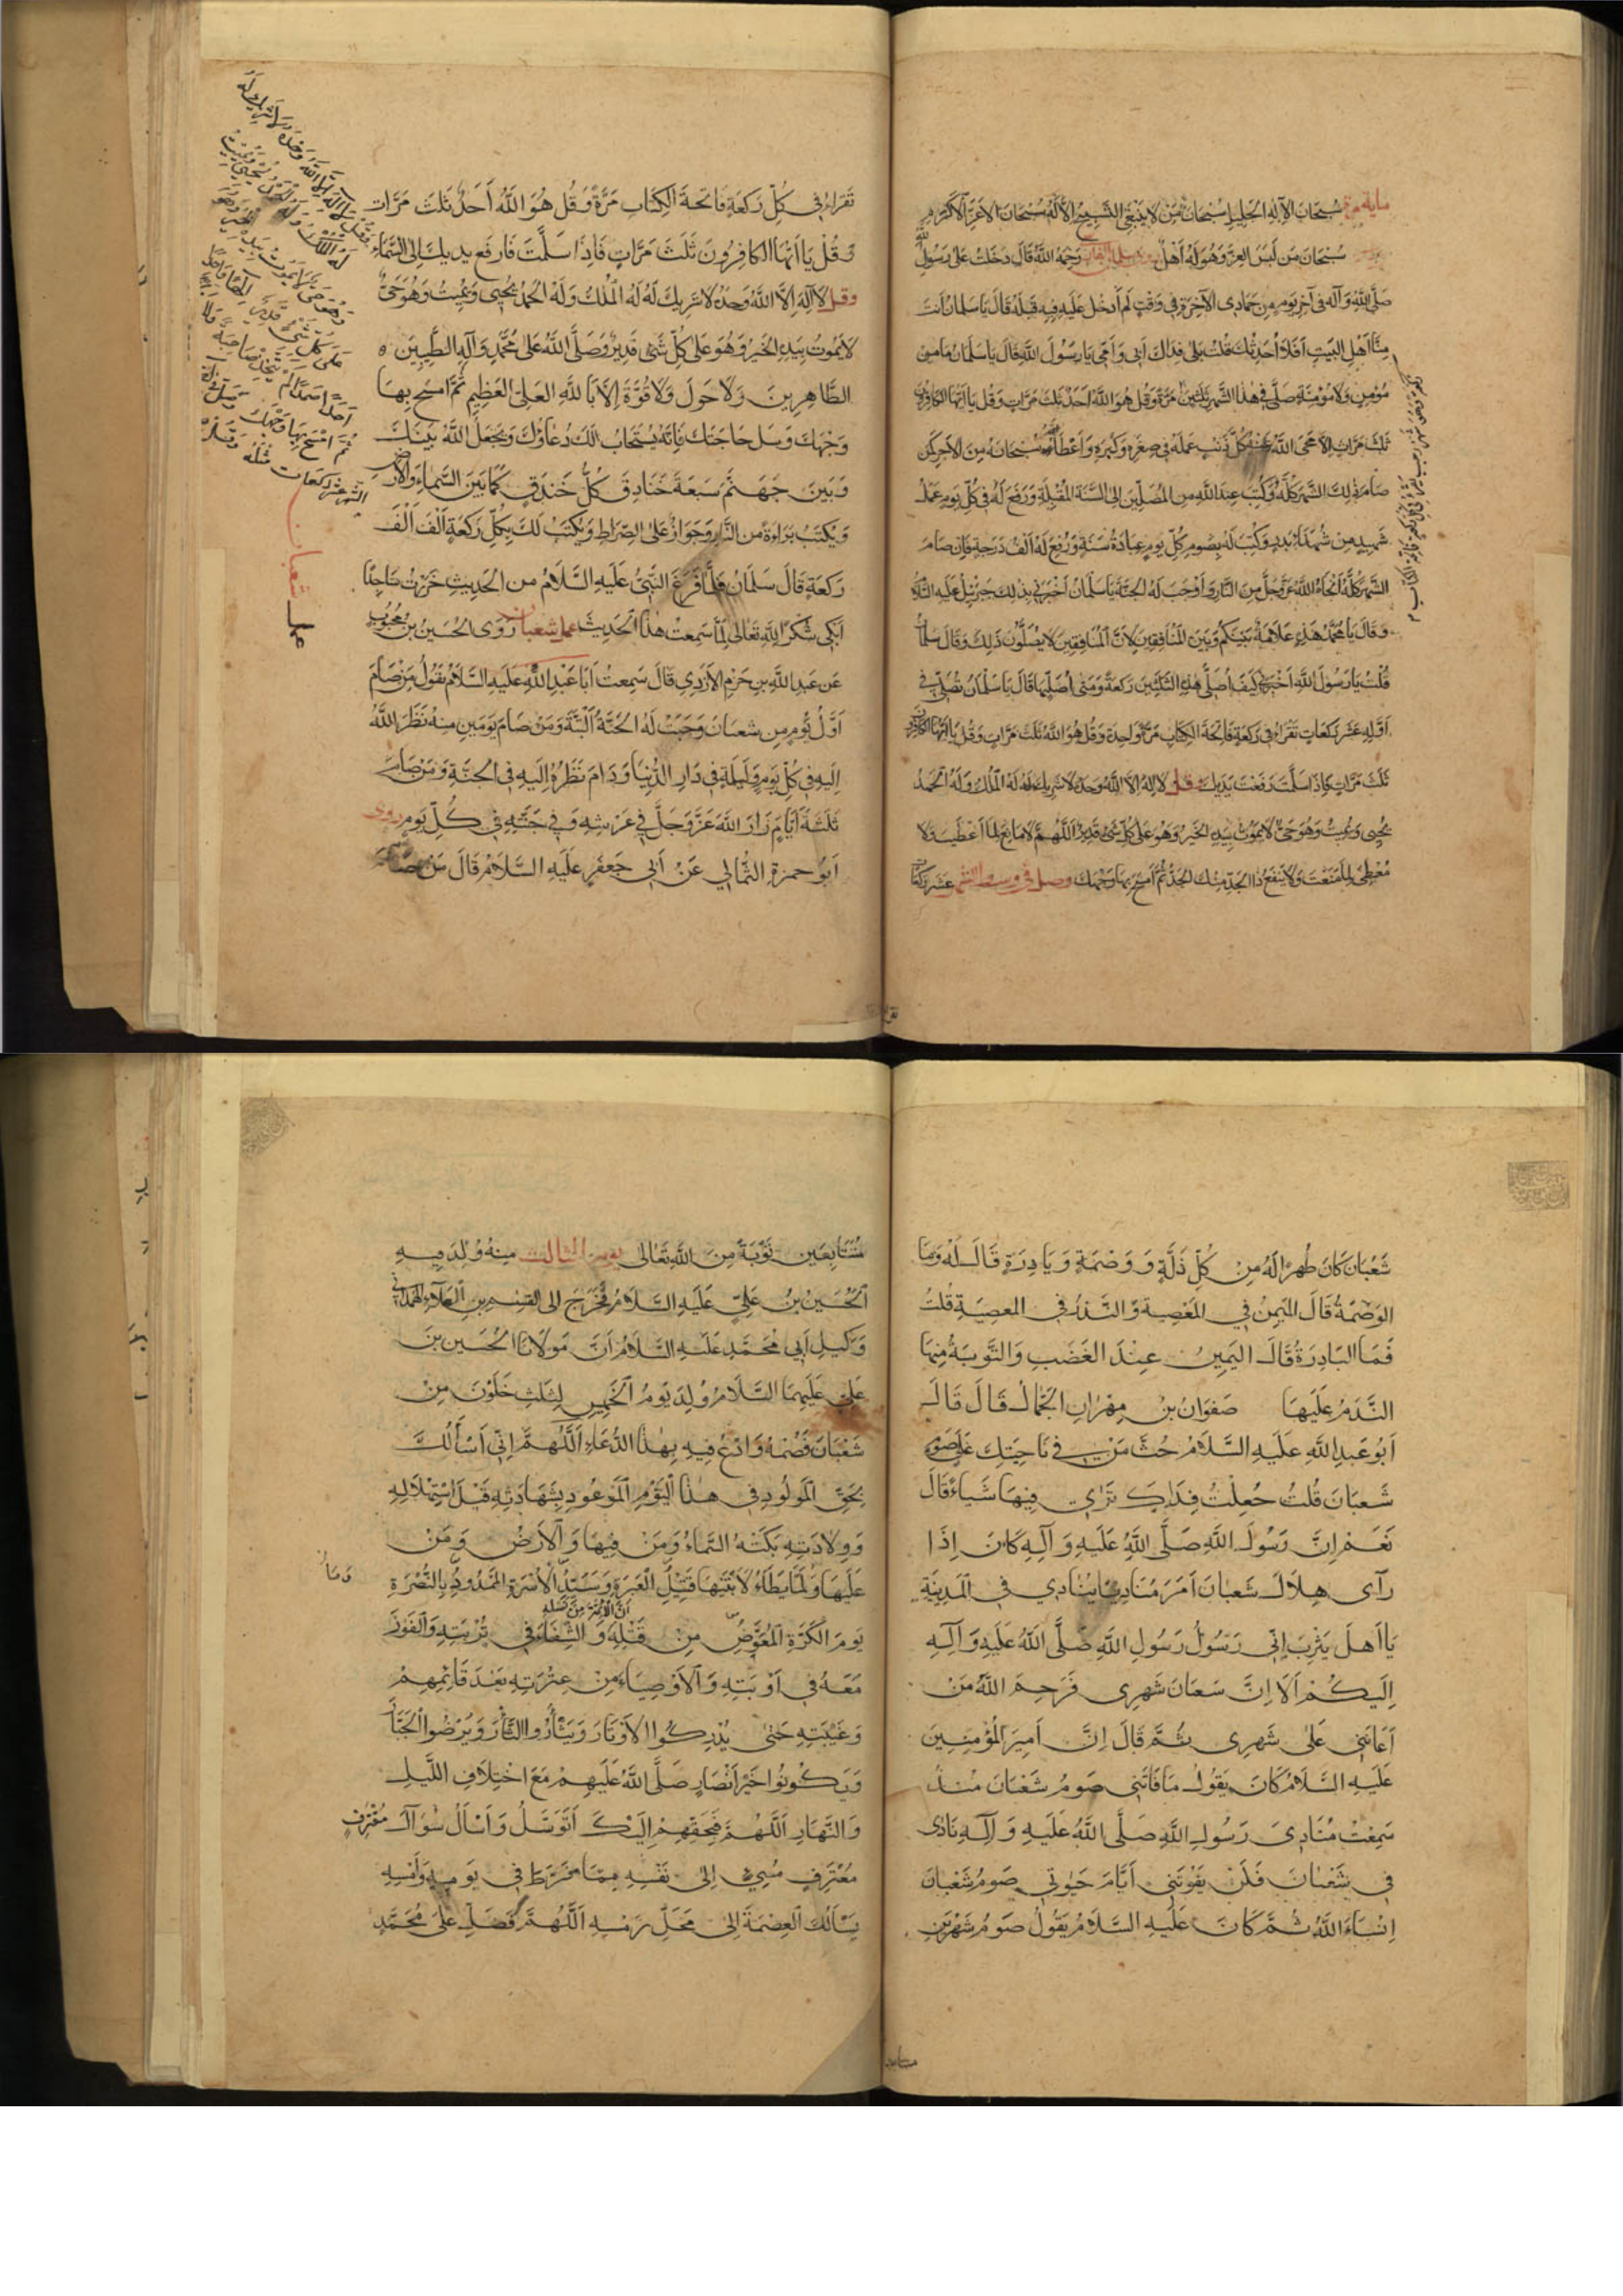 ماية مرة سُبْحَانَ الْإِلَهِ الْجَلِيلِ سُبْحَانَ مَنْ لَا يَنْبَغِي التَّسْبِيحُ إِلَّا لَهُ سُبْحَانَ الْأَعَزِّ الْأَكْرَمِ
سُبْحَانَ مَنْ لَبِسَ الْعِزَّ وَهُوَ لَهُ أَهْلٌ سلمان رَحِمَهُ اللَّهُ قَالَ دَخَلْتُ عَلَى رَسُولِ اللَّهِ
صَلَّى اللَّهُ وَآلِهِ فِي آخِرِ يَوْمٍ مِنْ جُمَادَى الْآخِرَةِ فِي وَقْتٍ لَمْ أَدْخُلْ عَلَيْهِ فِيهِ قَبْلَهُ قَالَ يَا سَلْمَانُ أَنْتَ
مِنَّا أَهْلَ الْبَيْتِ أَفَلَا أُحَدِّثُكَ قُلْتُ بَلَى فِدَاكَ أَبِي وَأُمِّي يَا رَسُولَ اللَّهِ قَالَ يَا سَلْمَانُ مَا مِنْ
مُؤْمِنٍ وَلَا مُؤْمِنَةٍ صَلَّى فِي هَذَا الشَّهْرِ ثَلَثِينَ مَرَّةً وَقُلْ هُوَ اللَّهُ أَحَدٌ ثَلَثَ مَرَّاتٍ وَقُلْ يَا أَيُّهَا الْكَافِرُونَ
ثَلَثَ مَرَّاتٍ إِلَّا مَحَى اللَّهُ عَنْهُ كُلَّ ذَنْبٍ عَمِلَهُ فِي صِغَرِهِ وَكِبَرِهِ وَأَعْطَاهُ سُبْحَانَهُ مِنَ الْأَجْرِ كَمَنْ
صَامَ ذَلِكَ الشَّهْرَ كُلَّهُ وَكُتِبَ عِنْدَ اللَّهِ مِنَ الْمُصَلِّينَ إِلَى السَّنَةِ الْمُقْبِلَةِ وَرُفِعَ لَهُ فِي كُلِّ يَوْمٍ عَمَلُ
شَهِيدٍ مِنْ شُهَدَاءِ بَدْرٍ وَكُتِبَ لَهُ بِصَوْمِ كُلِّ يَوْمٍ عِبَادَةُ سَنَةٍ وَرُفِعَ لَهُ أَلْفُ دَرَجَةٍ فَإِنْ صَامَ
الشَّهْرَ كُلَّهُ أَنْجَاهُ اللَّهُ عَزَّ وَجَلَّ مِنَ النَّارِ وَأَوْجَبَ لَهُ الْجَنَّةَ يَا سَلْمَانُ أَخْبَرَنِي بِذَلِكَ جَبْرَئِيلُ عَلَيْهِ السَّلَامُ
وَقَالَ يَا مُحَمَّدُ هَذِهِ عَلَامَةٌ بَيْنَكُمْ وَبَيْنَ الْمُنَافِقِينَ لِأَنَّ الْمُنَافِقِينَ لَا يُصَلُّونَ ذَلِكَ وَقَالَ سَلْمَانُ
قُلْتُ يَا رَسُولَ اللَّهِ أَخْبِرْنِي كَيْفَ أُصَلِّي هَذِهِ الثَّلَثِينَ رَكْعَةً وَمَتَى أُصَلِّيهَا قَالَ يَا سَلْمَانُ تُصَلِّي فِي
أَوَّلِهِ عَشْرَ رَكَعَاتٍ تَقْرَأُ فِي رَكْعَةٍ فَاتِحَةَ الْكِتَابِ مَرَّةً وَاحِدَةً وَقُلْ هُوَ اللَّهُ ثَلَثَ مَرَّاتٍ وَقُلْ يَا أَيُّهَا الْكَافِرُونَ
ثَلَثَ مَرَّاتٍ فَإِذَا سَلَّمْتَ رَفَعْتَ يَدَيْكَ وقل لَا إِلَهَ إِلَّا اللَّهُ وَحْدَهُ لَا شَرِيكَ لَهُ لَهُ الْمُلْكُ وَلَهُ الْحَمْدُ
يُحْيِي وَيُمِيتُ وَهُوَ حَيٌّ لَا يَمُوتُ بِيَدِهِ الْخَيْرُ وَهُوَ عَلَى كُلِّ شَيْءٍ قَدِيرٌ اللَّهُمَّ لَا مَانِعَ لِمَا أَعْطَيْتَ وَلَا
مُعْطِيَ لِمَا مَنَعْتَ وَلَا يَنْفَعُ ذَا الْجَدِّ مِنْكَ الْجَدُّ ثُمَّ امْسَحْ بِهِمَا وَجْهَكَ وصل في وسط الشهر عَشْرَ رَكَعَاتٍ
تَقْرَأُ فِي كُلِّ رَكْعَةٍ فَاتِحَةَ الْكِتَابِ مَرَّةً وَقُلْ هُوَ اللَّهُ أَحَدٌ ثَلَثَ مَرَّاتٍ
وَقُلْ يَا أَيُّهَا الْكَافِرُونَ ثَلَثَ مَرَّاتٍ فَإِذَا سَلَّمْتَ فَارْفَعْ يَدَيْكَ إِلَى السَّمَاءِ
وقل لَا إِلَهَ إِلَّا اللَّهُ وَحْدَهُ لَا شَرِيكَ لَهُ لَهُ الْمُلْكُ وَلَهُ الْحَمْدُ يُحْيِي وَيُمِيتُ وَهُوَ حَيٌّ
لَا يَمُوتُ بِيَدِهِ الْخَيْرُ وَهُوَ عَلَى كُلِّ شَيْءٍ قَدِيرٌ وَصَلَّى اللَّهُ عَلَى مُحَمَّدٍ وَآلِهِ الطَّيِّبِينَ
الطَّاهِرِينَ وَلَا حَوْلَ وَلَا قُوَّةَ إِلَّا بِاللَّهِ الْعَلِيِّ الْعَظِيمِ ثُمَّ امْسَحْ بِهَا
وَجْهَكَ وَسَلْ حَاجَتَكَ فَإِنَّهُ يُسْتَجَابُ لَكَ دُعَاؤُكَ وَيَجْعَلُ اللَّهُ بَيْنَكَ
وَبَيْنَ جَهَنَّمَ سَبْعَةَ خَنَادِقَ كُلُّ خَنْدَقٍ كَمَا بَيْنَ السَّمَاءِ وَالْأَرْضِ
وَيُكْتَبُ بَرَاءَةٌ مِنَ النَّارِ وَجَوَازٌ عَلَى الصِّرَاطِ وَيُكْتَبُ لَكَ بِكُلِّ رَكْعَةٍ أَلْفَ أَلْفَ
رَكْعَةٍ قَالَ سَلْمَانُ فَلَمَّا فَرَغَ النَّبِيُّ عَلَيْهِ السَّلَامُ مِنَ الْحَدِيثِ خَرَرْتُ سَاجِدًا
أَبْكِي شُكْرًا لِلَّهِ تَعَالَى لِمَا سَمِعْتُ هَذَا الْحَدِيثَ عمل شعبان رَوَى الْحُسَيْنُ بْنُ مَحْبُوبٍ
عَنْ عَبْدِ اللَّهِ بْنِ حَزْمٍ الْأَزْدِيِّ قَالَ سَمِعْتُ أَبَا عَبْدِ اللَّهِ عَلَيْهِ السَّلَامُ يَقُولُ مَنْ صَامَ
أَوَّلَ يَوْمٍ مِنْ شَعْبَانَ وَجَبَتْ لَهُ الْجَنَّةُ أَلْبَتَّةَ وَمَنْ صَامَ يَوْمَيْنِ مِنْهُ نَظَرَ اللَّهُ
إِلَيْهِ فِي كُلِّ يَوْمٍ وَلَيْلَةٍ فِي دَارِ الدُّنْيَا وَدَامَ نَظَرُهُ إِلَيْهِ فِي الْجَنَّةِ وَمَنْ صَامَ
ثَلَثَةَ أَيَّامٍ زَارَ اللَّهَ عَزَّ وَجَلَّ فِي عَرْشِهِ وَفِي جَنَّتِهِ فِي كُلِّ يَوْمٍ روى
أَبُو حَمْزَةَ الثُّمَالِيُّ عَنْ أَبِي جَعْفَرٍ عَلَيْهِ السَّلَامُ قَالَ مَنْ صَامَ
عمل شعبان
شَعْبَانَ كَانَ طُهْرًا لَهُ مِنْ كُلِّ ذَلَّةٍ وَوَصْمَةٍ وَبَادِرَةٍ قَالَ لَهُ وَمَا
الْوَصْمَةُ قَالَ الْيَمِينُ فِي الْمَعْصِيَةِ وَالنَّذْرُ فِي الْمَعْصِيَةِ قُلْتُ
فَمَا الْبَادِرَةُ قَالَ الْيَمِينُ عِنْدَ الْغَضَبِ وَالتَّوْبَةُ مِنْهَا
النَّدَمُ عَلَيْهَا صَفْوَانُ بْنُ مِهْرَانَ الْجَمَّالُ قَالَ قَالَ
أَبُو عَبْدِ اللَّهِ عَلَيْهِ السَّلَامُ حُثَّ مَنْ فِي نَاحِيَتِكَ عَلَى صَوْمِ
شَعْبَانَ قُلْتُ جُعِلْتُ فِدَاكَ تَرَى فِيهَا شَيْئًا قَالَ
نَعَمْ إِنَّ رَسُولَ اللَّهِ صَلَّى اللَّهُ عَلَيْهِ وَآلِهِ كَانَ إِذَا
رَأَى هِلَالَ شَعْبَانَ أَمَرَ مُنَادِيًا يُنَادِي فِي الْمَدِينَةِ
يَا أَهْلَ يَثْرِبَ إِنِّي رَسُولُ رَسُولِ اللَّهِ صَلَّى اللَّهُ عَلَيْهِ وَآلِهِ
إِلَيْكُمْ أَلَا إِنَّ شَعْبَانَ شَهْرِي فَرَحِمَ اللَّهُ مَنْ
أَعَانَنِي عَلَى شَهْرِي ثُمَّ قَالَ إِنَّ أَمِيرَ الْمُؤْمِنِينَ
عَلَيْهِ السَّلَامُ كَانَ يَقُولُ مَا فَاتَنِي صَوْمُ شَعْبَانَ مُنْذُ
سَمِعْتُ مُنَادِيَ رَسُولِ اللَّهِ صَلَّى اللَّهُ عَلَيْهِ وَآلِهِ نَادَى
فِي شَعْبَانَ فَلَنْ يَفُوتَنِي أَيَّامَ حَيَوتِي صَوْمُ شَعْبَانَ
إِنْشَاءَ اللَّهُ ثُمَّ كَانَ عَلَيْهِ السَّلَامُ يَقُولُ صَوْمُ شَهْرَيْنِ
مُتَتَابِعَيْنِ تَوْبَةً مِنَ اللَّهِ تَعَالَى يوم الثالث مِنْهُ وُلِدَ فِيهِ
الْحُسَيْنُ بْنُ عَلِيٍّ عَلَيْهِ السَّلَامُ فَخَرَجَ إِلَى الْقَسِمِ بْنِ الْعَلَاءِ الْهَمْدَانِي
وَكِيلِ أَبِي مُحَمَّدٍ عَلَيْهِ السَّلَامُ أَنَّ مَوْلَانَا الْحُسَيْنَ بْنَ
عَلِيٍّ عَلَيْهِمَا السَّلَامُ وُلِدَ يَوْمَ الْخَمِيسِ لِثَلَثٍ خَلَوْنَ مِنْ
شَعْبَانَ فَصُمْهُ وَادْعُ فِيهِ بِهَذَا الدُّعَاءِ اللَّهُمَّ إِنِّي أَسْأَلُكَ
بِحَقِّ الْمَوْلُودِ فِي هَذَا الْيَوْمِ الْمَوْعُودِ بِشَهَادَتِهِ قَبْلَ اسْتِهْلَالِهِ
وَوِلَادَتِهِ بَكَتْهُ السَّمَاءُ وَمَنْ فِيهَا وَالْأَرْضُ وَمَنْ
عَلَيْهَا وَلَمَّا يَطَأْ لَابَتَيْهَا قَتِيلِ الْعَبَرَةِ وَسَيِّدِ الْأُسْرَةِ الْمَمْدُودِ بِالنُّصْرَةِ
يَوْمَ الْكَرَّةِ الْمُعَوَّضِ مِنْ قَتْلِهِ أَنَّ الْأَئِمَّةَ مِنْ نَسْلِهِ وَالشِّفَاءَ فِي تُرْبَتِهِ وَالْفَوْزَ
مَعَهُ فِي أَوْبَتِهِ وَالْأَوْصِيَاءَ مِنْ عِتْرَتِهِ بَعْدَ قَائِمِهِمْ
وَغَيْبَتِهِ حَتَّى يُدْرِكُوا الْأَوْتَارَ وَيَثْأَرُوا الثَّأْرَ وَيُرْضُوا الْجَبَّارَ
وَيَكُونُوا خَيْرَ أَنْصَارٍ صَلَّى اللَّهُ عَلَيْهِمْ مَعَ اخْتِلَافِ اللَّيْلِ
وَالنَّهَارِ اللَّهُمَّ فَبِحَقِّهِمْ إِلَيْكَ أَتَوَسَّلُ وَأَسْأَلُ سُؤَالَ مُقْتَرِفٍ
مُعْتَرِفٍ مُسِيءٍ إِلَى نَفْسِهِ مِمَّا فَرَّطَ فِي يَوْمِهِ وَأَمْسِهِ
يَسْأَلُكَ الْعِصْمَةَ إِلَى مَحَلِّ رَمْسِهِ اللَّهُمَّ فَصَلِّ عَلَى مُحَمَّدٍ